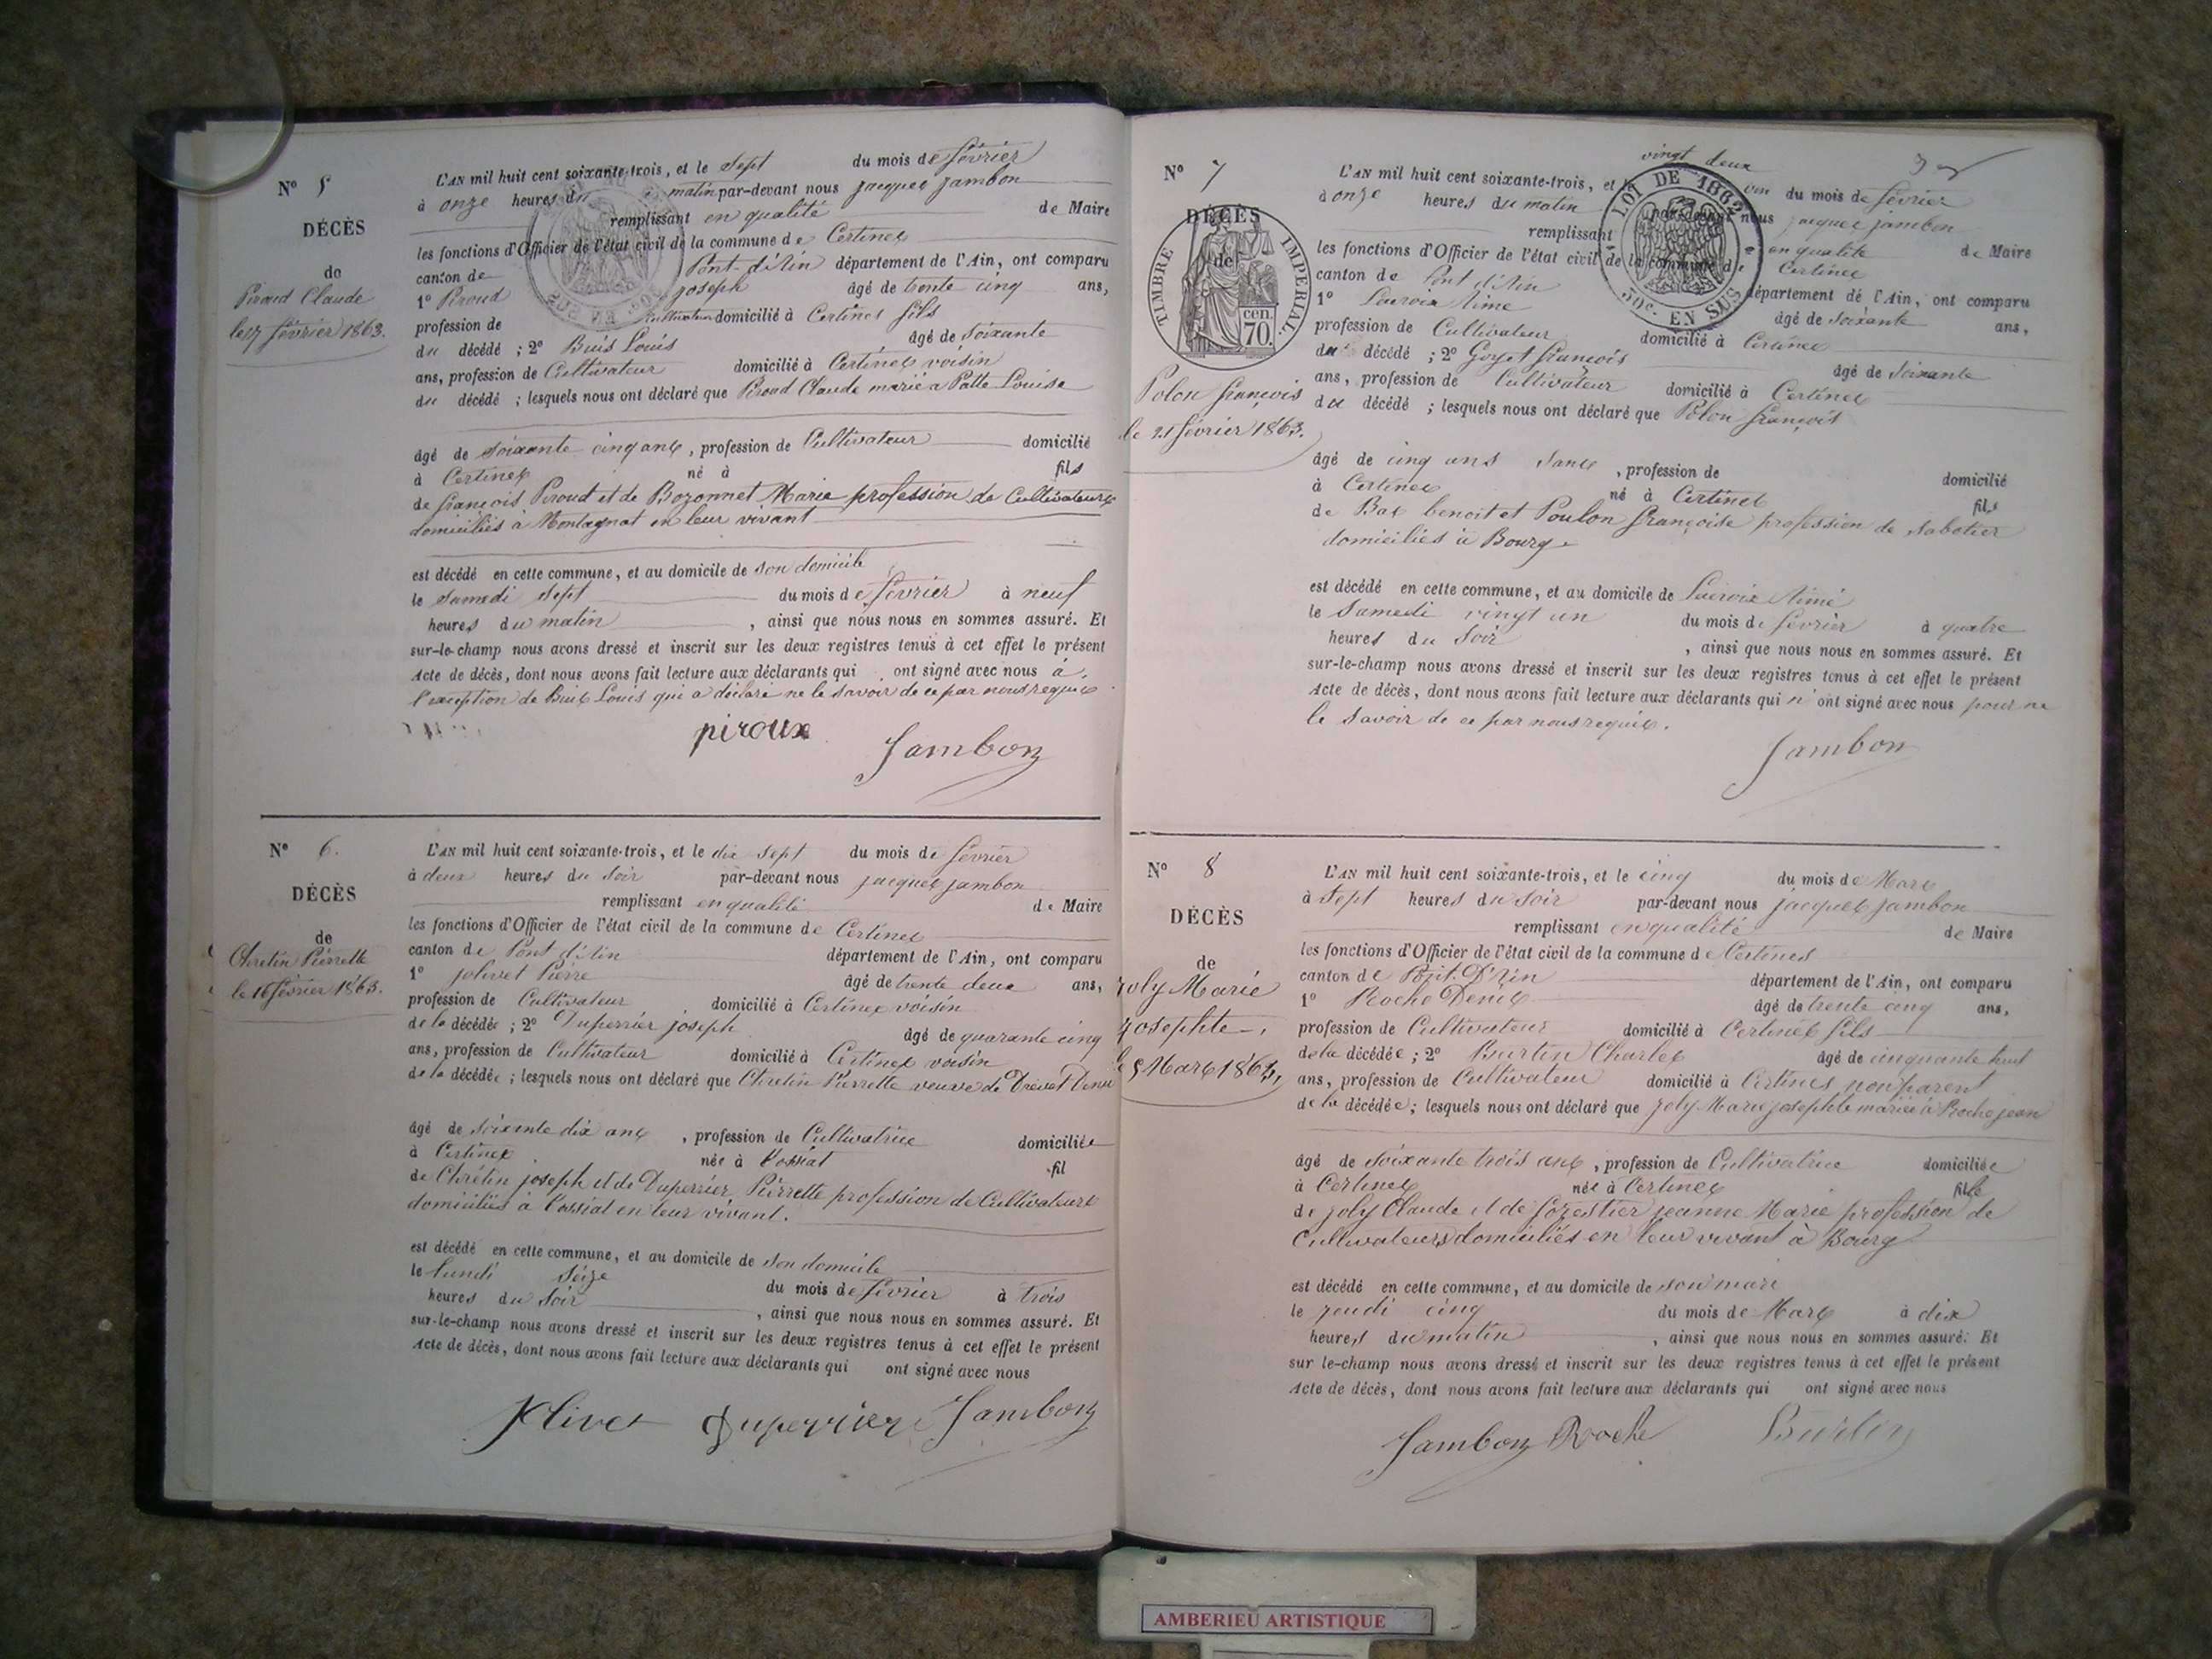 N° 5
DÉCÈS
de
Piroud Claude
le 17 février 1863.
L'AN mil huit cent soixante-trois, et le sept du mois de février
à onze heures du matin par-devant nous jacques jambon
remplissant en qualité de Maire
les fonctions d'Officier de l'état civil de la commune de Certines
canton de Pont-d'Ain département de l'Ain, ont comparu
1° Piroud joseph âgé de trente cinq ans,
profession de Cultivateur domicilié à Certines fils
du décédé ; 2° Buis Louis âgé de soixante
ans, profession de Cultivateur domicilié à Certines voisin
du décédé ; lesquels nous ont déclaré que Piroud Claude marié a Patte Louise
âgé de soixante cinq ans, profession de Cultivateur domicilié
à Certines né à fils
de françois Piroud et de Bozonnet Marie profession de Cultivateurs
domiciliés à Montagnat en leur vivant
est décédé en cette commune, et au domicile de son domicile
le Samedi sept du mois de février à neuf
heures du matin , ainsi que nous nous en sommes assuré. Et
sur-le-champ nous avons dressé et inscrit sur les deux registres tenus à cet effet le présent
Acte de décès, dont nous avons fait lecture aux déclarants qui ont signé avec nous à
l'exception de Buis Louis qui a déclaré ne le savoir de ce par nous requis
piroux Jambon
N° 6.
DÉCÈS
de
Chretin Pierrette
le 16 février 1863.
L'AN mil huit cent soixante-trois, et le dix sept du mois de février
à deux heures du soir par-devant nous jacques jambon
remplissant en qualité de Maire
les fonctions d'Officier de l'état civil de la commune de Certines
canton de Pont d'Ain département de l'Ain, ont comparu
1° jolivet Pierre âgé de trente deux ans,
profession de Cultivateur domicilié à Certines voisin
de la décédée ; 2° Duperrier joseph âgé de quarante cinq
ans, profession de Cultivateur domicilié à Certines voisin
de la décédée ; lesquels nous ont déclaré que Chretin Pierrette veuve de Drevet
âgé de soixante dix ans , profession de Cultivatrice domiciliée
à Certines née à Tossiat fil
de Chrétin joseph et de Duperrier Pierrette profession de Cultivateurs
domiciliés à Tossiat en leur vivant.
est décédé en cette commune, et au domicile de son domicile
le lundi seize du mois de février à trois
heures du soir , ainsi que nous nous en sommes assuré. Et
sur-le-champ nous avons dressé et inscrit sur les deux registres tenus à cet effet le présent
Acte de décès, dont nous avons fait lecture aux déclarants qui ont signé avec nous
Jolivet Duperrier Jambon
N° 7
DÉCÈS
de
TIMBRE IMPÉRIAL.
cen. 70.
LOI DE 1862
50c. EN SUS
Polon françois
le 21 février 1863.
vingt deux
L'AN mil huit cent soixante-trois, et du mois de février
à onze heures du matin par-devant nous jacques jambon
remplissant en qualité de Maire
les fonctions d'Officier de l'état civil de la commune de Certines
canton de Pont d'Ain département de l'Ain, ont comparu
1° Lacroix Aimé âgé de soixante ans,
profession de Cultivateur domicilié à Certines
du décédé ; 2° Goyet françois âgé de soixante
ans, profession de Cultivateur domicilié à Certines
du décédé ; lesquels nous ont déclaré que Polon françois
âgé de cinq ans sans , profession de domicilié
à Certines né à Certines fils
de Bal benoit et Poulon françoise profession de sabotier
domiciliés à Bourg.
est décédé en cette commune, et au domicile de Lacroix Aimé
le Samedi vingt un du mois de février à quatre
heures du soir , ainsi que nous nous en sommes assuré. Et
sur-le-champ nous avons dressé et inscrit sur les deux registres tenus à cet effet le présent
Acte de décès, dont nous avons fait lecture aux déclarants qui n'ont signé avec nous pour ne
le savoir de ce par nous requis.
Jambon
N° 8
DÉCÈS
de
joly Marie
josephte
le 5 Mars 1863,
L'AN mil huit cent soixante-trois, et le cinq du mois de Mars
à sept heures du soir par-devant nous jacques jambon
remplissant en qualité de Maire
les fonctions d'Officier de l'état civil de la commune de Certines
canton de Pont-D'Ain département de l'Ain, ont comparu
1° Roche Denis âgé de trente cinq ans,
profession de Cultivateur domicilié à Certines fils
de la décédée ; 2° Burtin Charles âgé de cinquante huit
ans, profession de Cultivateur domicilié à Certines non parent
de la décédée ; lesquels nous ont déclaré que joly Marie josephte mariée à Roche jean
âgé de soixante trois ans , profession de Cultivatrice domiciliée
à Certines née à Certines fille
de joly Claude et de forestier jeanne Marie profession de
Cultivateurs domiciliés en leur vivant à Bourg
est décédé en cette commune, et au domicile de son mari
le jeudi cinq du mois de Mars à dix
heures du matin , ainsi que nous nous en sommes assuré. Et
sur le-champ nous avons dressé et inscrit sur les deux registres tenus à cet effet le présent
Acte de décès, dont nous avons fait lecture aux déclarants qui ont signé avec nous
Jambon Roche Burtin
AMBERIEU ARTISTIQUE